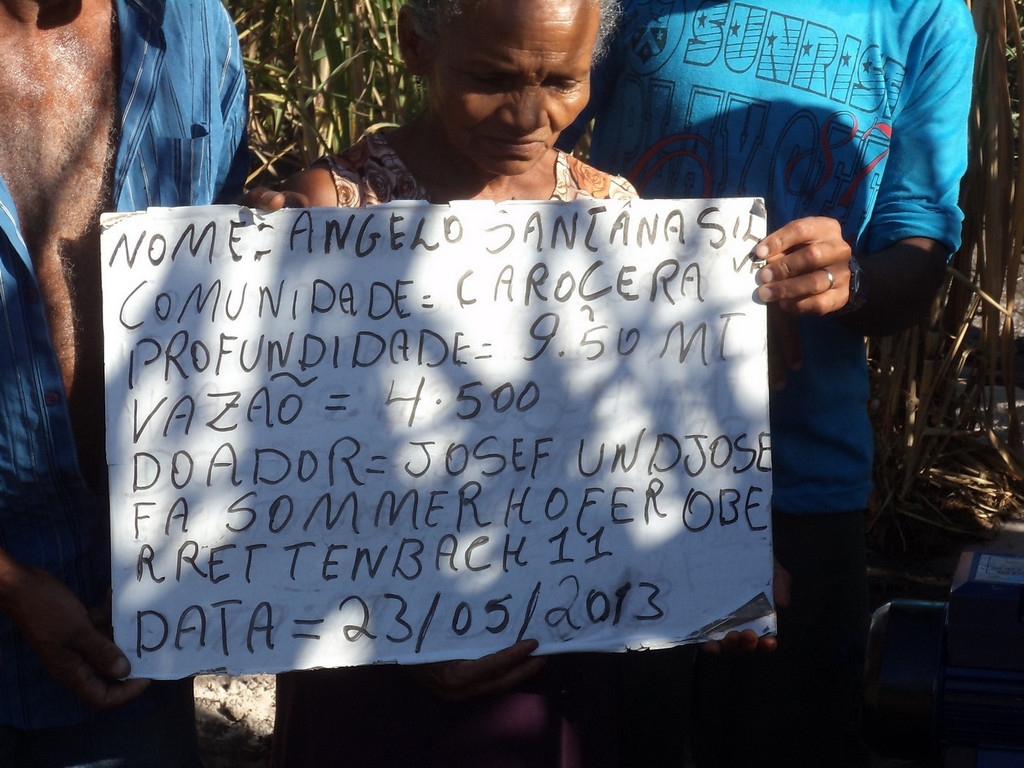 SUNRISE
NOME= ANGELO SANTANA SIL
VA
COMUNIDADE= CAROÇERA
PROFUNDIDADE= 9.50 MT
VAZÃO = 4.500
DOADOR= JOSEF UND JOSE
FA SOMMERHOFER OBE
RRETTENBACH 11
DATA = 23/05/2013